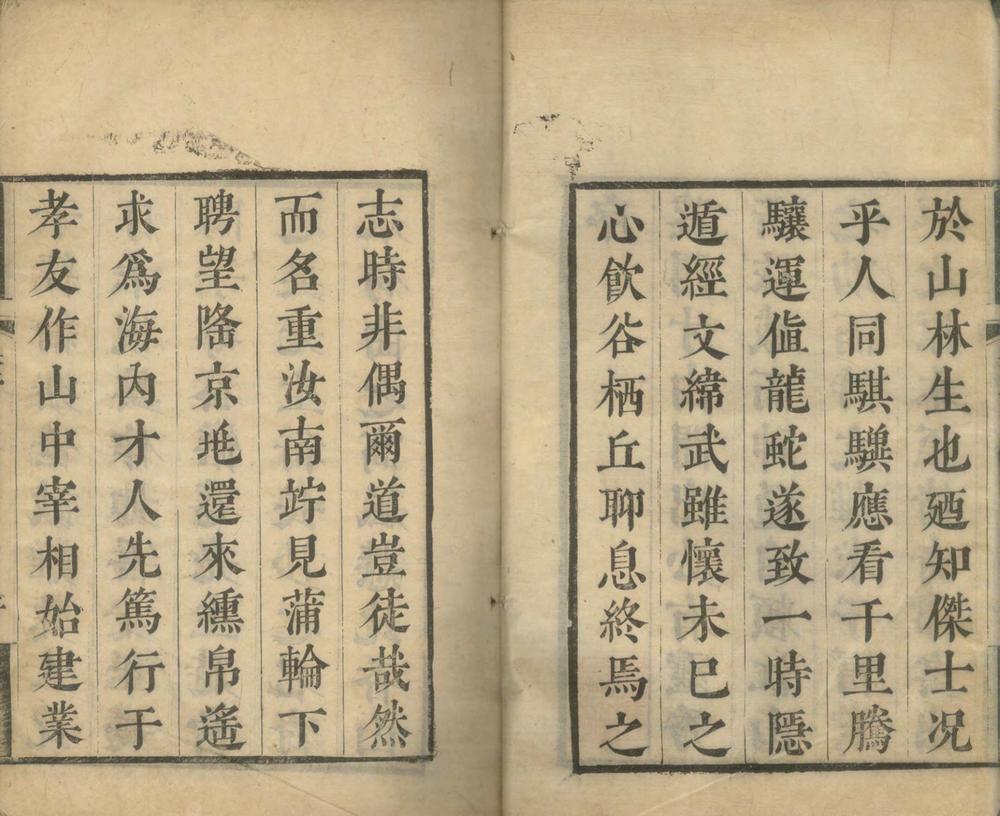 於山林生也廼知傑士况
乎人同騏驥應看千里騰
驤運值龍蛇遂致一時隱
遁經文緯武雖懷未已之
心飲谷栖丘聊息終焉之
志時非偶爾道豈徒哉然
而名重汝南竚見蒲輪下
聘望隆京兆還來纁帛遙
求為海內才人先篤行于
孝友作山中宰相始建業